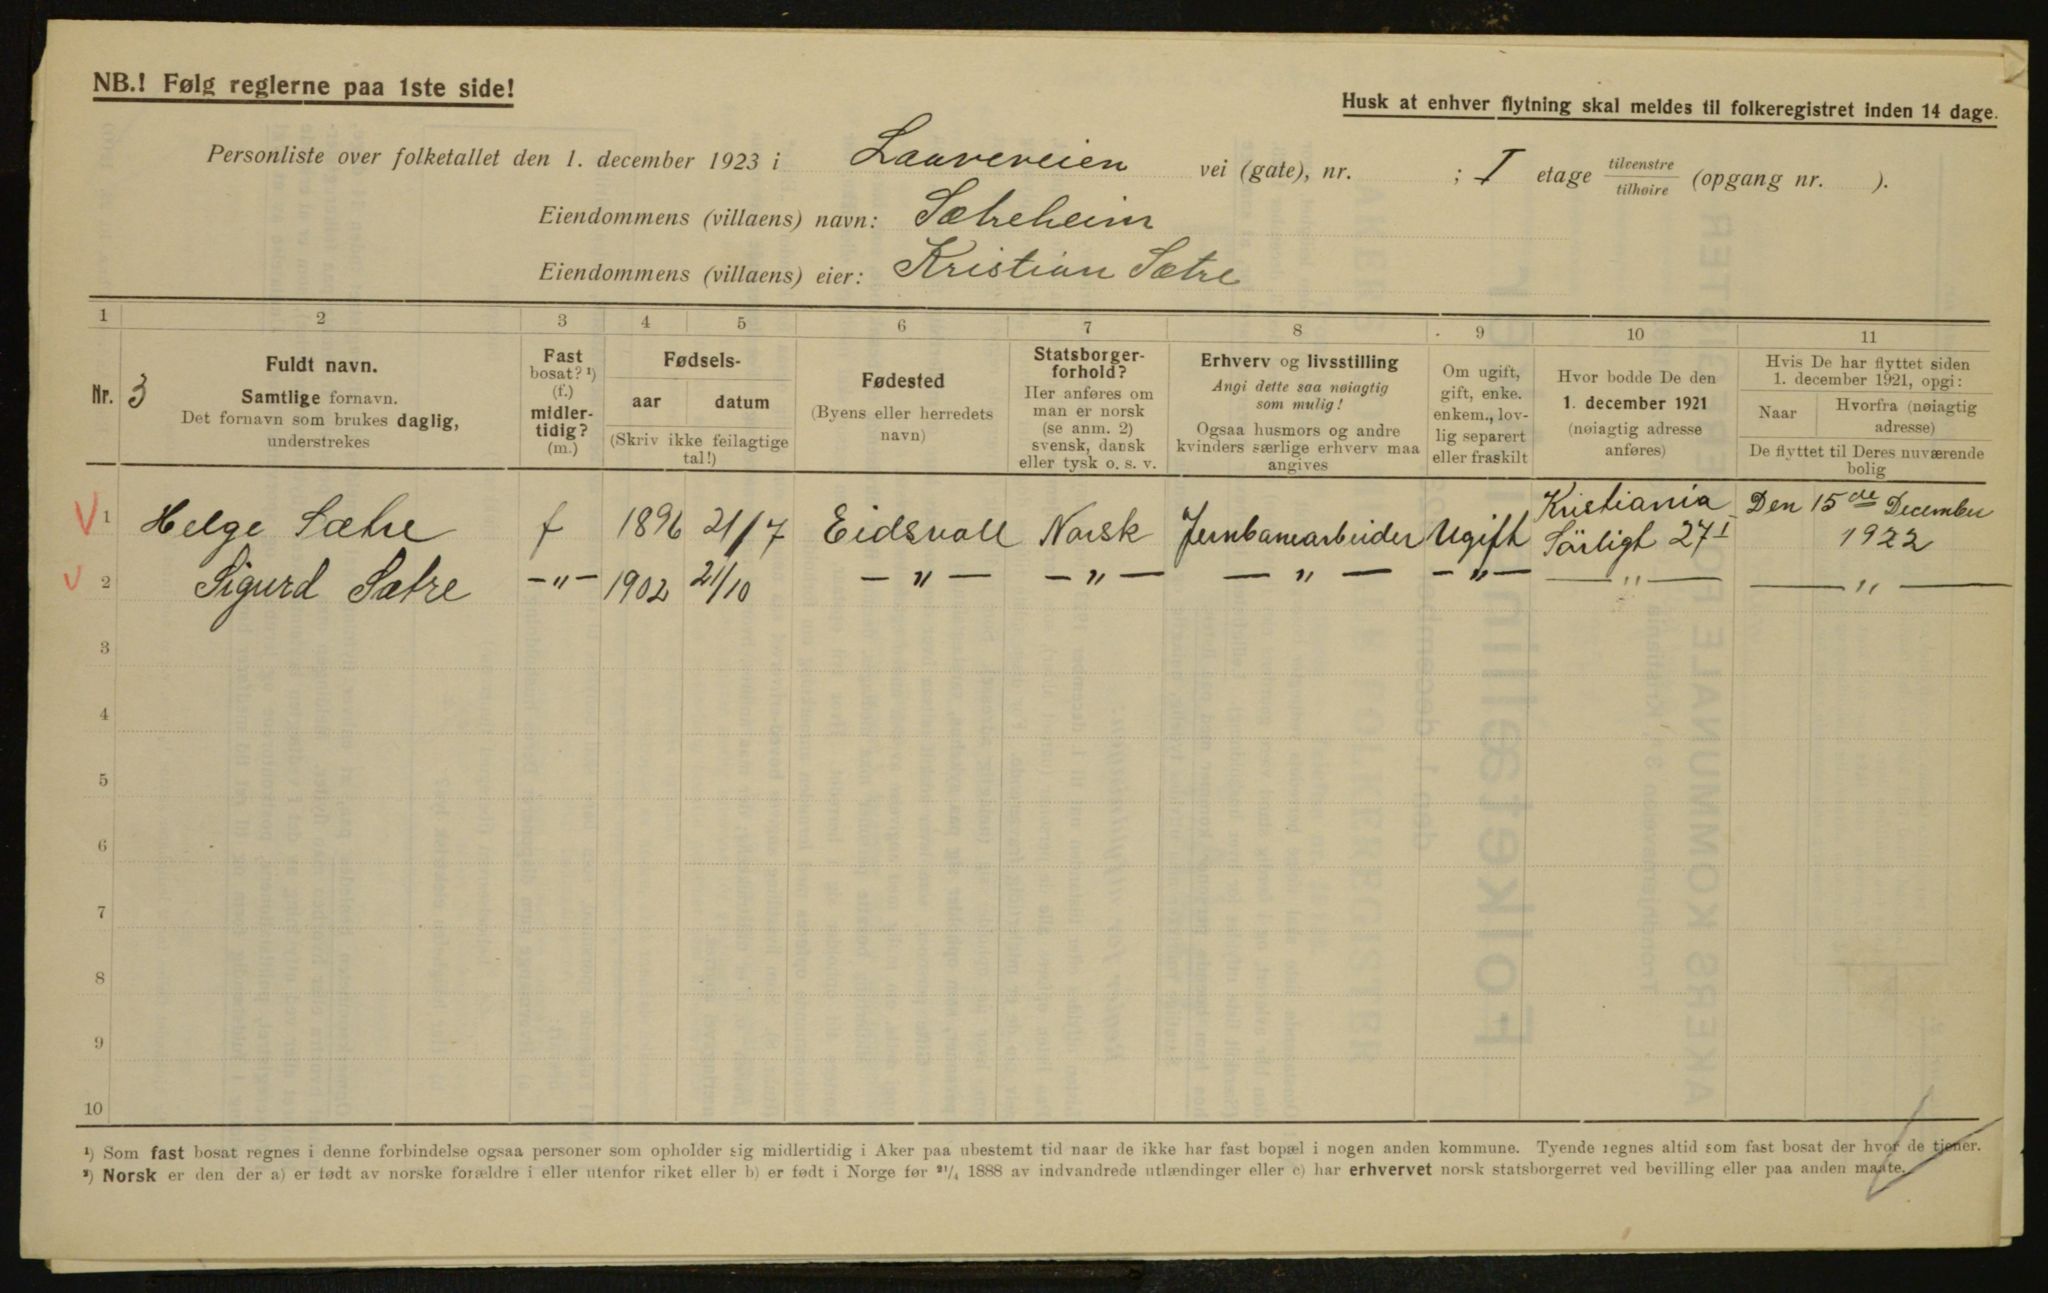 NB.! Følg reglerne paa 1ste side!
Husk at enhver flytning skal meldes til folkeregistret inden 14 dage.
Personliste over folketallet den 1. december 1923 i Laurveien vei (gate), nr. ; I etage tilvenstre / tilhøire (opgang nr. ).
Eiendommens (villaens) navn: Sætreheim
Eiendommens (villaens) eier: Kristian Sætre
1 2 3 4 5 6 7 8 9 10 11
Nr. 3
Fuldt navn.
Samtlige fornavn.
Det fornavn som brukes daglig,
understrekes
Fast
bosat? ¹)
(f.)
midler-
tidig?
(m.)
Fødsels-
aar datum
(Skriv ikke feilagtige
tal!)
Fødested
(Byens eller herredets
navn)
Statsborger-
forhold?
Her anføres om
man er norsk
(se anm. 2)
svensk, dansk
eller tysk o. s. v.
Erhverv og livsstilling
Angi dette saa nøiagtig
som mulig!
Ogsaa husmors og andre
kvinders særlige erhverv maa
angives
Om ugift,
gift, enke.
enkem., lov-
lig separert
eller fraskilt
Hvor bodde De den
1. december 1921
(nøiagtig adresse
anføres)
Hvis De har flyttet siden
1. december 1921, opgi:
Naar Hvorfra (nøiagtig
adresse)
De flyttet til Deres nuværende
bolig
1 Helge Sætre f 1896 21/7 Eidsvoll Norsk Jernbanearbeider Ugift Kristiania Sörligt 27 I Den 15de December 1922
2 Sigurd Sætre —"— 1902 21/10 — " — — " — — " — — " — — " — — " —
3
4
5
6
7
8
9
10
¹) Som fast bosat regnes i denne forbindelse ogsaa personer som opholder sig midlertidig i Aker paa ubestemt tid naar de ikke har fast bopæl i nogen anden kommune. Tyende regnes altid som fast bosat der hvor de tjener.
²) Norsk er den der a) er født av norske forældre i eller utenfor riket eller b) er født i Norge før ²¹/₄ 1888 av indvandrede utlændinger eller c) har erhvervet norsk statsborgerret ved bevilling eller paa anden maate.